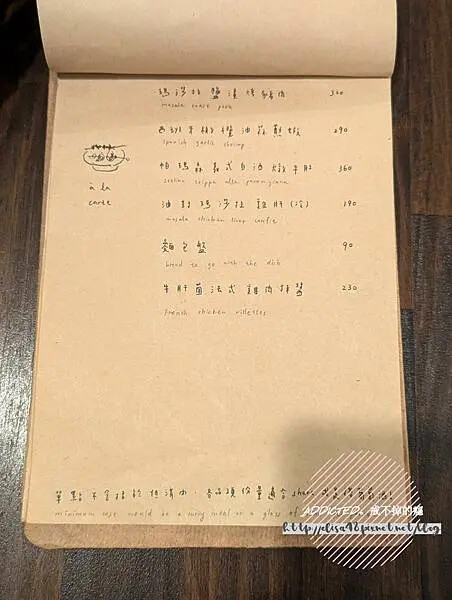 瑪莎拉鹽漬烤豬肉 360
masala roast pork
西班牙橄欖油蒜煎蝦 290
spanish garlic shrimp
帕瑪森義式白酒燉牛肚 360
trippa alla parmigiana
油封瑪莎拉雞肝(冷) 190
masala chicken liver confit
à la
carte
麵包盤 90
bread to go with the dish
牛肝菌法式雞肉抹醬 230
french chicken rillettes
單點不含抵於低消內，各品項份量適合 share
minimum case would be a curry meal or a glass of
ADDICTED。戒不掉的癮
http://elisa98.pixnet.net/blog